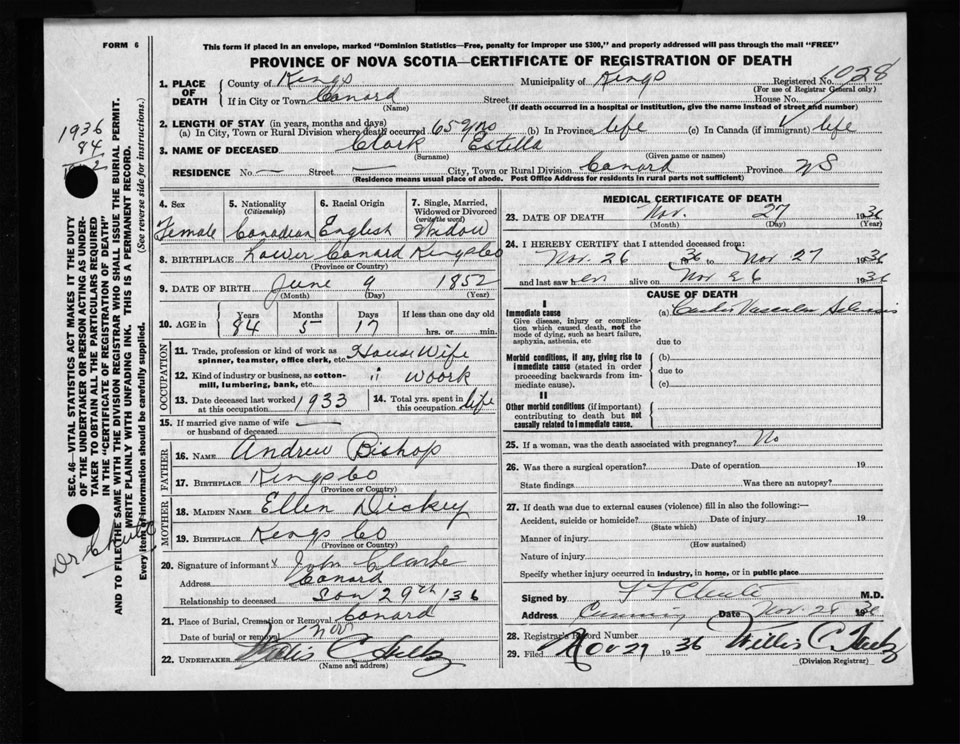 FORM 6
This form if placed in an envelope, marked "Dominion Statistics—Free, penalty for improper use $300," and properly addressed will pass through the mail "FREE"
PROVINCE OF NOVA SCOTIA—CERTIFICATE OF REGISTRATION OF DEATH
1. PLACE OF DEATH
County of Kings Municipality of Kings Registered No. 1028
(For use of Registrar General only)
If in City or Town Canard Street House No.
(Name) (If death occurred in a hospital or institution, give the name instead of street and number)
2. LENGTH OF STAY (in years, months and days)
(a) In City, Town or Rural Division where death occurred 65 yrs (b) In Province life (c) In Canada (if immigrant) life
3. NAME OF DECEASED Clark Estella
(Surname) (Given name or names)
RESIDENCE No. — Street — City, Town or Rural Division Canard Province NS
(Residence means usual place of abode. Post Office Address for residents in rural parts not sufficient)
4. Sex Female
5. Nationality (Citizenship) Canadian
6. Racial Origin English
7. Single, Married, Widowed or Divorced (write the word) Widow
8. BIRTHPLACE Lower Canard Kings Co
(Province or Country)
9. DATE OF BIRTH June 9 1852
(Month) (Day) (Year)
10. AGE in Years 84 Months 5 Days 17 If less than one day old hrs. or min.
OCCUPATION
11. Trade, profession or kind of work as spinner, teamster, office clerk, etc. House Wife
12. Kind of industry or business, as cotton-mill, lumbering, bank, etc. " woork
13. Date deceased last worked at this occupation 1933
14. Total yrs. spent in this occupation life
15. If married give name of wife or husband of deceased —
FATHER
16. NAME Andrew Bishop
17. BIRTHPLACE Kings Co
(Province or Country)
MOTHER
18. MAIDEN NAME Ellen Dickey
19. BIRTHPLACE Kings Co
(Province or Country)
20. Signature of informant John Clarke
Address Canard
Relationship to deceased son 29th /36
21. Place of Burial, Cremation or Removal Canard
Date of burial or removal Nov
22. UNDERTAKER
(Name and address)
MEDICAL CERTIFICATE OF DEATH
23. DATE OF DEATH Nov. 27 1936
(Month) (Day) (Year)
24. I HEREBY CERTIFY that I attended deceased from:
Nov. 26 36 to Nov 27 1936
and last saw her alive on Nov 26 1936
CAUSE OF DEATH
I
Immediate cause
Give disease, injury or complication which caused death, not the mode of dying, such as heart failure, asphyxia, asthenia, etc
(a) Cardio Vascular Sclerosis
due to
Morbid conditions, if any, giving rise to immediate cause (stated in order proceeding backwards from immediate cause).
(b)
due to
(c)
II
Other morbid conditions (if important) contributing to death but not causally related to immediate cause.
25. If a woman, was the death associated with pregnancy? No
26. Was there a surgical operation? Date of operation 19
State findings Was there an autopsy?
27. If death was due to external causes (violence) fill in also the following:—
Accident, suicide or homicide? Date of injury 19
(State which)
Manner of injury
(How sustained)
Nature of injury
Specify whether injury occurred in industry, in home, or in public place
Signed by M.D.
Address Canning Date Nov. 28 1936
28. Registrar's Record Number
29. Filed Nov 29 1936 Willis C
(Division Registrar)
SEC. 46—VITAL STATISTICS ACT MAKES IT THE DUTY
OF THE UNDERTAKER OR PERSON ACTING AS UNDER-
TAKER TO OBTAIN ALL THE PARTICULARS REQUIRED
IN THE "CERTIFICATE OF REGISTRATION OF DEATH"
AND TO FILE THE SAME WITH THE DIVISION REGISTRAR WHO SHALL ISSUE THE BURIAL PERMIT.
WRITE PLAINLY WITH UNFADING INK. THIS IS A PERMANENT RECORD.
Every item of information should be carefully supplied. (See reverse side for instructions.)
1936
84